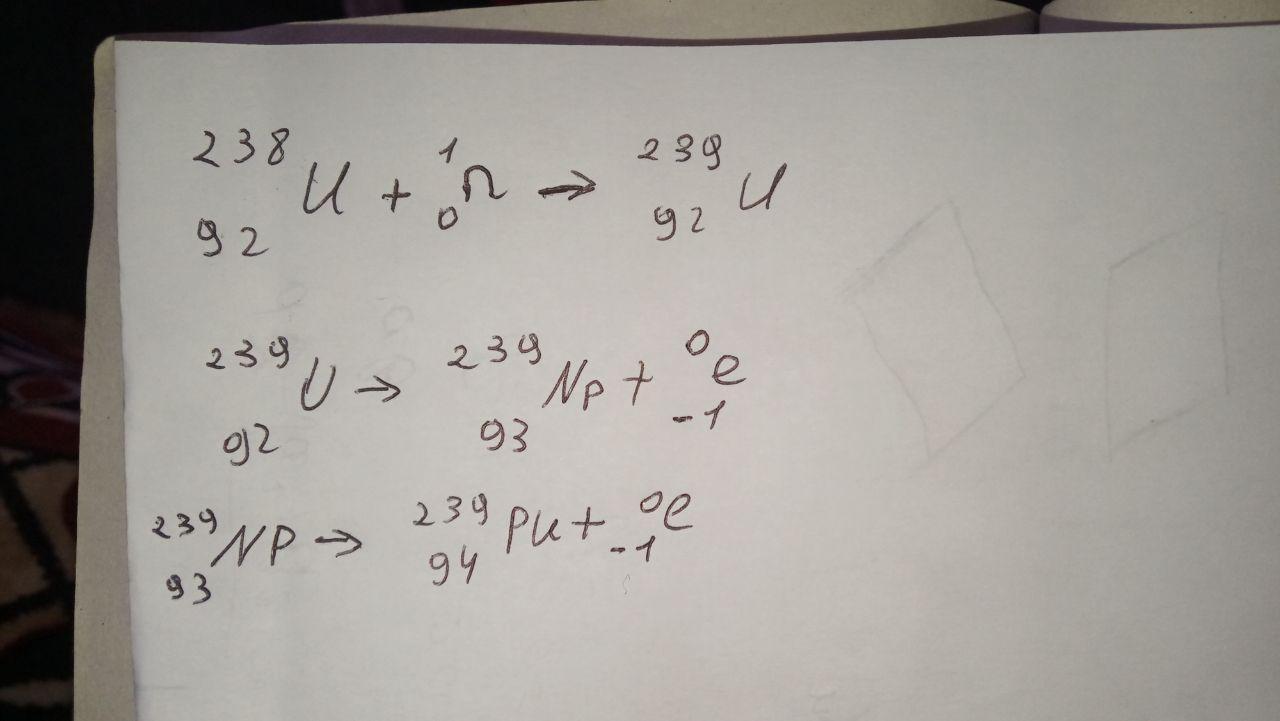 ²³⁸₉₂U + ¹₀n → ²³⁹₉₂U
²³⁹₉₂U → ²³⁹₉₃Np + ⁰₋₁e
²³⁹₉₃NP → ²³⁹₉₄Pu + ⁰₋₁e